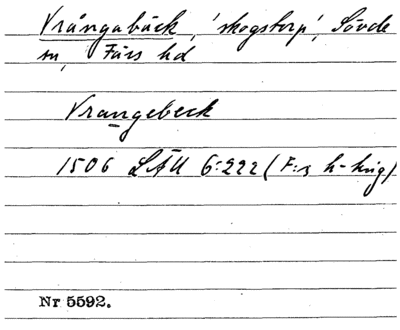 Vrångabäck, 'skogstorp', Sövde
sn, Färs hd
Vrangebeck
1506 LÄU 6:222 (F:s h-krig)
Nr 5592.